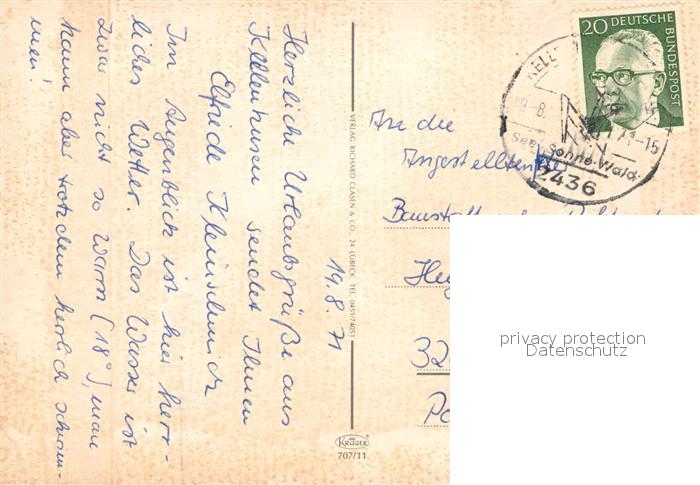 19.8.71
Herzliche Urlaubsgrüße aus
Kellenhusen sendet Ihnen
Elfriede Kleinschmidt
Im Augenblick ist hier herr-
liches Wetter. Das Wasser ist
zwar nicht so warm (18°), man
kann aber trotzdem herrlich schwim-
men!
VERLAG RICHARD CLASEN & CO., 24 LÜBECK, TEL. 0451/74051
KRÜGER
707/11
20 DEUTSCHE
BUNDESPOST
KELL
19.-8.71-15
See·Sonne·Wald·
2436
An die
Angestellten
privacy protection
Datenschutz